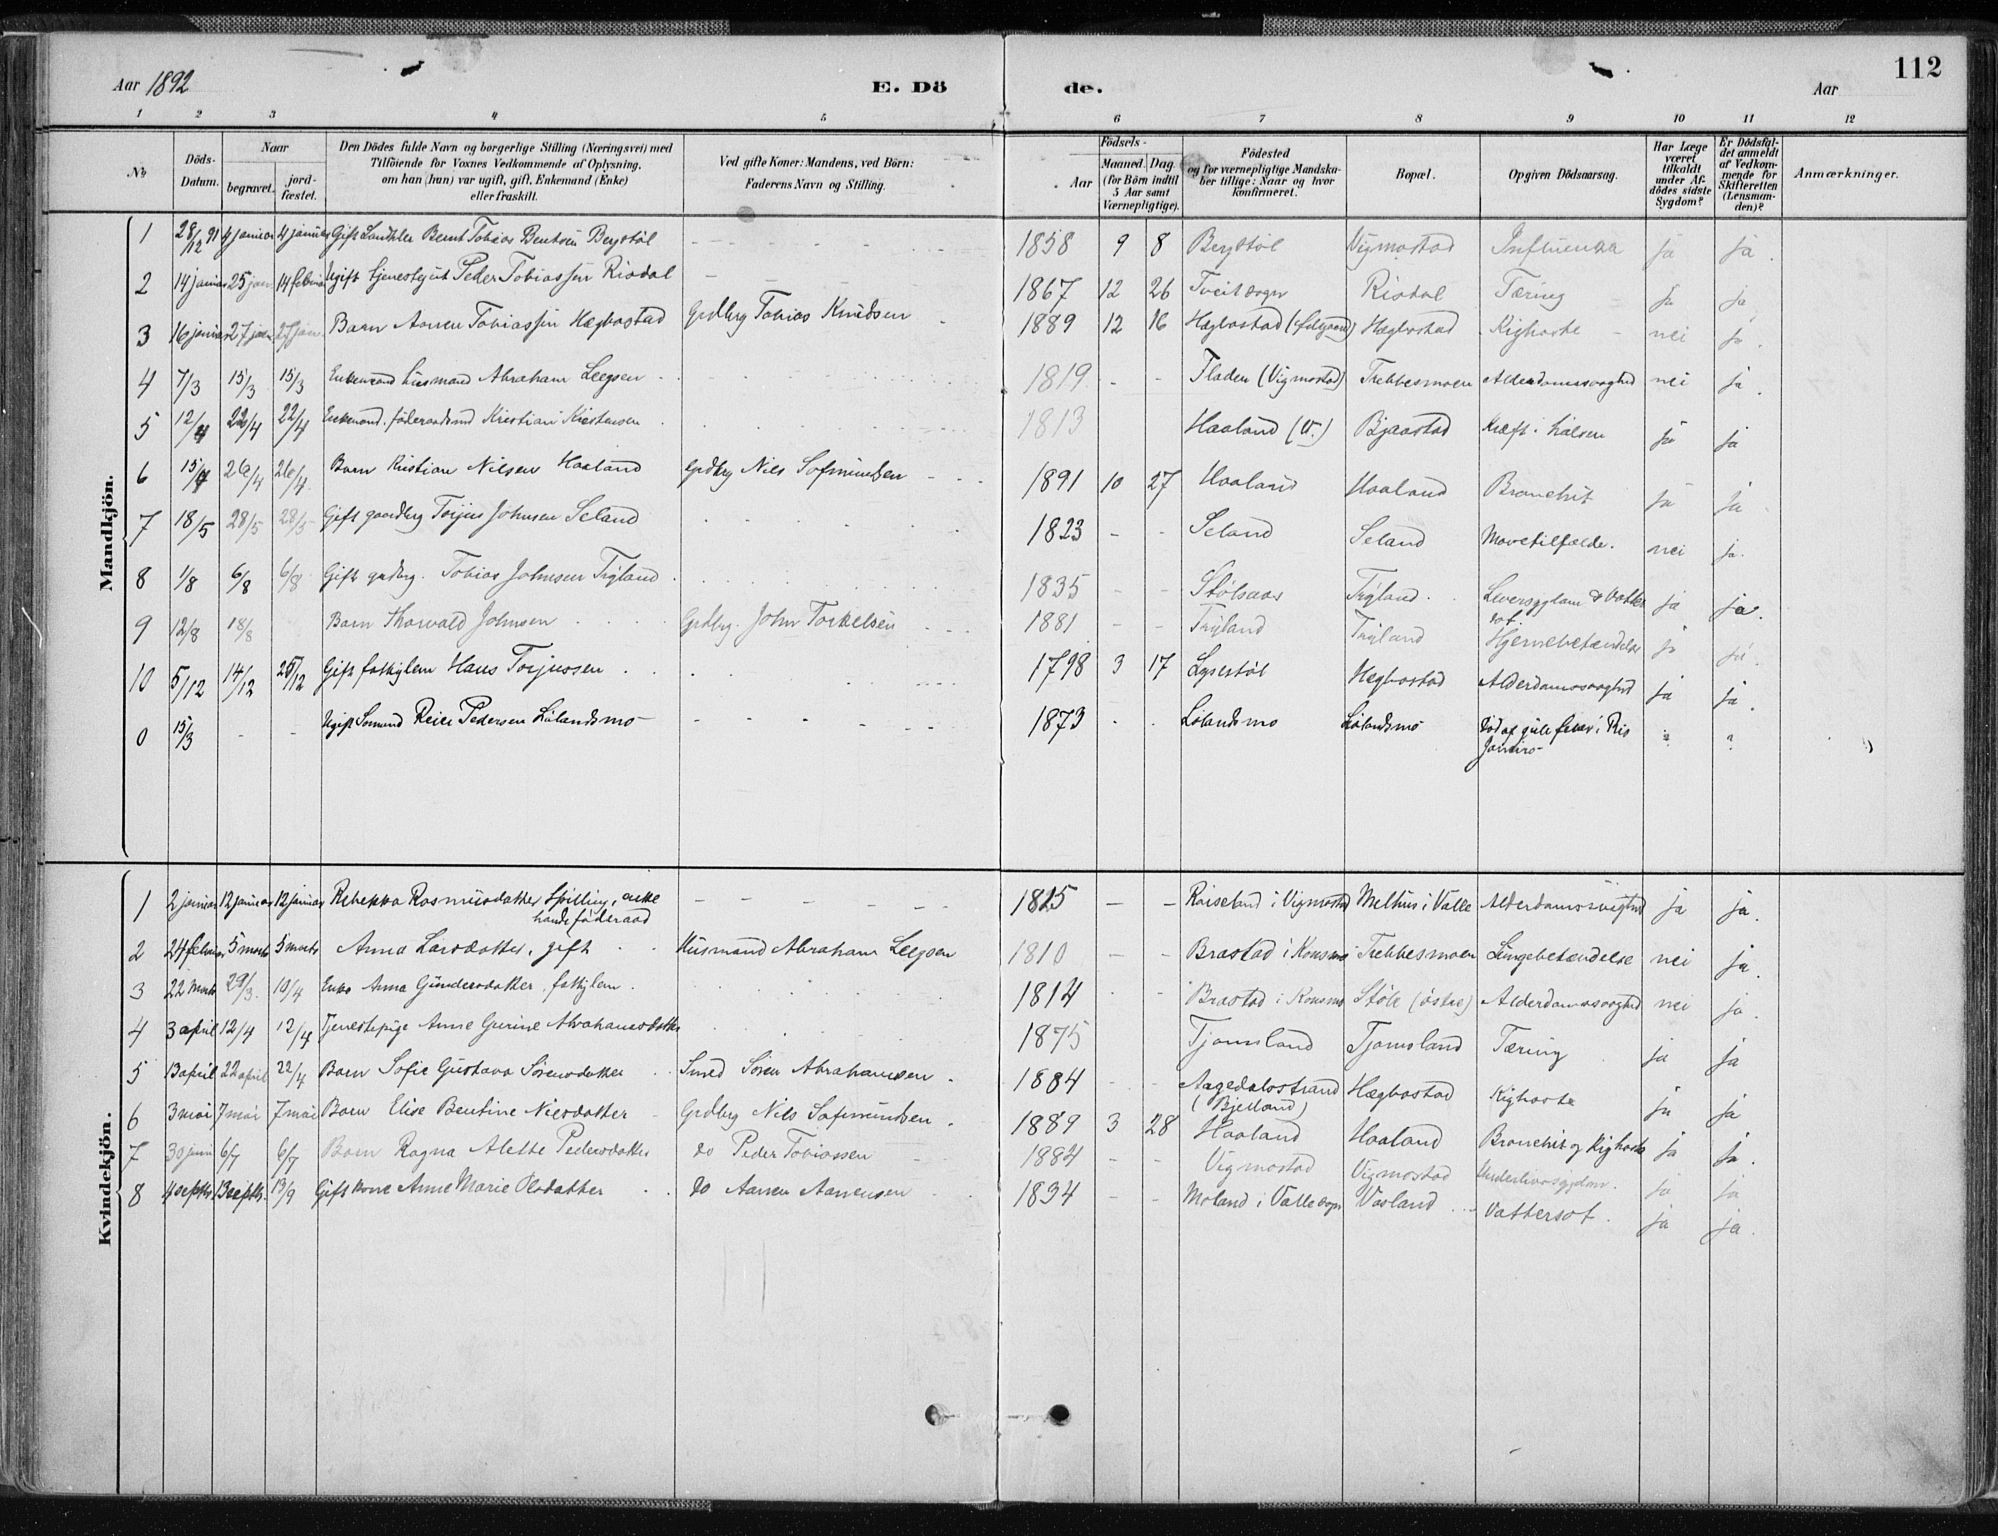 112
Aar 1892 E. Dö de. Aar
1 2 3 4 5 6 7 8 9 10 11 12
No
Döds-Datum.
Naar
begravet.
jord-fæstet.
Den Dödes fulde Navn og borgerlige Stilling (Næringsvei) med
Tilföiende for Voxnes Vedkommende af Oplysning,
om han (hun) var ugift, gift, Enkemand (Enke)
eller fraskilt.
Ved gifte Koner: Mandens, ved Börn:
Faderens Navn og Stilling.
Födsels-
Aar
Maaned. Dag
(for Börn indtil
5 Aar samt
Værnepligtige).
Födested
og for værnepligtige Mandska-
ber tillige: Naar og hvor
konfirmeret.
Bopæl.
Opgiven Dödsaarsag.
Har Læge
været
tilkaldt
under Af-
dödes sidste
Sygdom?
Er Dödsfal-
det anmeldt
af Vedkom-
mende for
Skifteretten
(Lensman-
den)?
Anmærkninger.
Mandkjön.
1 28/12 91 4 januar 4 januar Gift Bernt Tobias Bentsen Bergstöl 1858 9 8 Bergstöl Vigmostad Influenza ja ja.
2 14 januar 25 jan 14 februar Ugift tjenestegut Peder Tobiassen Risdal 1867 12 26 Tveit sogn Risdal Tæring ja ja
3 16 januar 27 jan 27 jan. Barn Aanen Tobiassen Hægbostad Grdbrg Tobias Knudsen 1889 12 16 Hægbostad Hægbostad Kighoste nei ja.
4 7/3 15/3 15/3 Enkemand husmand Abraham Leegsen 1819 - - Fladen (Vigmostad) Trebbesmoen Alderdomssvaghed nei ja.
5 12/4 22/4 22/4 Enkemand. föderaadsmd Kristian Kristensen 1813 Haaland (V.) Bjaastad Kræft i halsen ja ja
6 15/4 26/4 26/4 Barn Kristian Nilsen Haaland Grdbrg Nils Sofmundsen 1891 10 27 Haaland Haaland Bronchit ja ja
7 18/5 28/5 28/5 Gift gaardbrg Torjus Johnsen Seland 1823 - - Seland Seland Mavetilfælde. nei ja.
8 1/8 6/8 6/8 Gift grdbrg. Tobias Johnsen Trÿland 1835 - - Stölsaas Trÿland. Leversygdom & Vatter
sot. ja ja.
9 12/8 18/8 Barn Thorvald Johnsen Grdbrg. John Torkelsen 1881 - - Trÿland Trÿland Hjernebetændelse ja ja.
10 5/12 14/12 25/12 Gift fattiglem Hans Torjussen 1798 3 17 Lysestöl Hægbostad Alderdomssvaghed ja ja.
0 15/3 - - Ugift Sömand Reier Pedersen Lölandsmo 1873 Lölandsmo Lölandsmo död af gule feber i Rio
Janeiro - ? ?
Kvindekjön.
1 2 januar 12 januar 12 januar Rebekka Rasmusdatter Spilling, enke
föderaad 1825 - - Röiseland i Vigmostad Melhus i Valle Alderdomssvaghed ja ja.
2 24 februar 5 marts 5 marts Anna Larsdatter, gift Husmand Abraham Leegsen 1810 - - Brastad i Konsmo Trebbesmoen Lungebetændelse nei ja.
3 22 Marts 29/3. 10/4 Enke Anna Gundersdatter, fattiglem 1814 Brastad i Konsmo Stöle (östre) Alderdomssvaghed nei ja.
4 3 april 12/4 12/4 Tjenestepige Anne Gurine Abrahamsdatter 1875 Tjomsland Tjomsland Tæring ja ja
5 13 april 22 april 22/4 Barn Sofie Gustava Sörensdatter Smed Sören Abrahamsen 1884 - - Aagedalsstrand
(Bjelland) Hægbostad Kighoste ja ja
6 3 mai 7 mai 7 mai Barn Elise Bentine Nilsdatter Grdbrg Nils Sofmundsen 1889 3 28 Haaland Haaland Bronchit og Kighoste ja ja.
7 30 juni 6/7 6/7 Barn Ragna Alette Pedersdatter do Peder Tobiassen 1884 - - Vigmostad Vigmostad Underlivssygdom. ja ja
8 4 septbr. 13 septbr. 13/9 Gift kone Anne Marie Olsdatter do Aanen Aanensen 1834 - - Moland i Valle sogn Vasland Vattersot. ja ja.